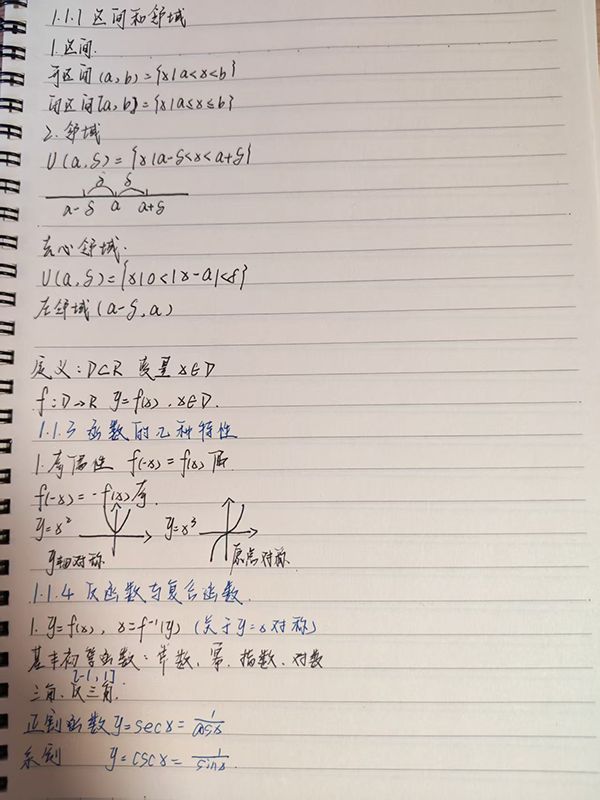 1.1.1 区间和邻域
1.区间.
开区间(a,b)={x|a<x<b}
闭区间[a,b]={x|a≤x≤b}
2.邻域
U(a,δ)={x|a-δ<x<a+δ}
δ δ
a-δ a a+δ
去心邻域.
U(a,δ)={x|0<|x-a|<δ}
左邻域(a-δ,a)
定义:D⊂R 变量x∈D
f:D→R y=f(x),x∈D.
1.1.3 函数的几种特性
1.奇偶性 f(-x)=f(x)偶
f(-x)=-f(x)奇.
y=x² y=x³
y轴对称 原点对称.
1.1.4 反函数与复合函数.
1. y=f(x), x=f⁻¹(y) (关于y=x对称)
基本初等函数:常数、幂、指数、对数
[-1,1]
三角、反三角.
正割函数y=secx=1/cosx
余割 y=cscx=1/sinx.